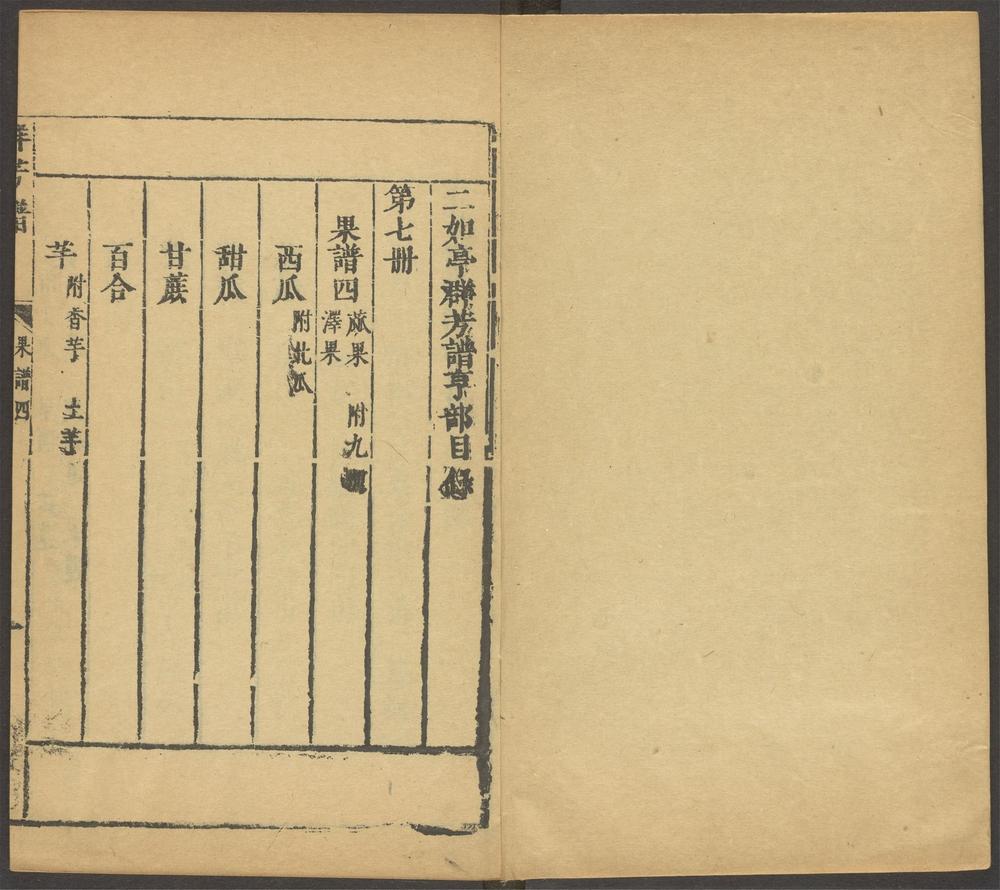 二如亭羣芳譜亨部目錄
第七冊
果譜四 蓏果 澤果 附九種
西瓜 附北瓜
甜瓜
甘蔗
百合
芋 附香芋 土芋
羣芳譜 果譜四 一